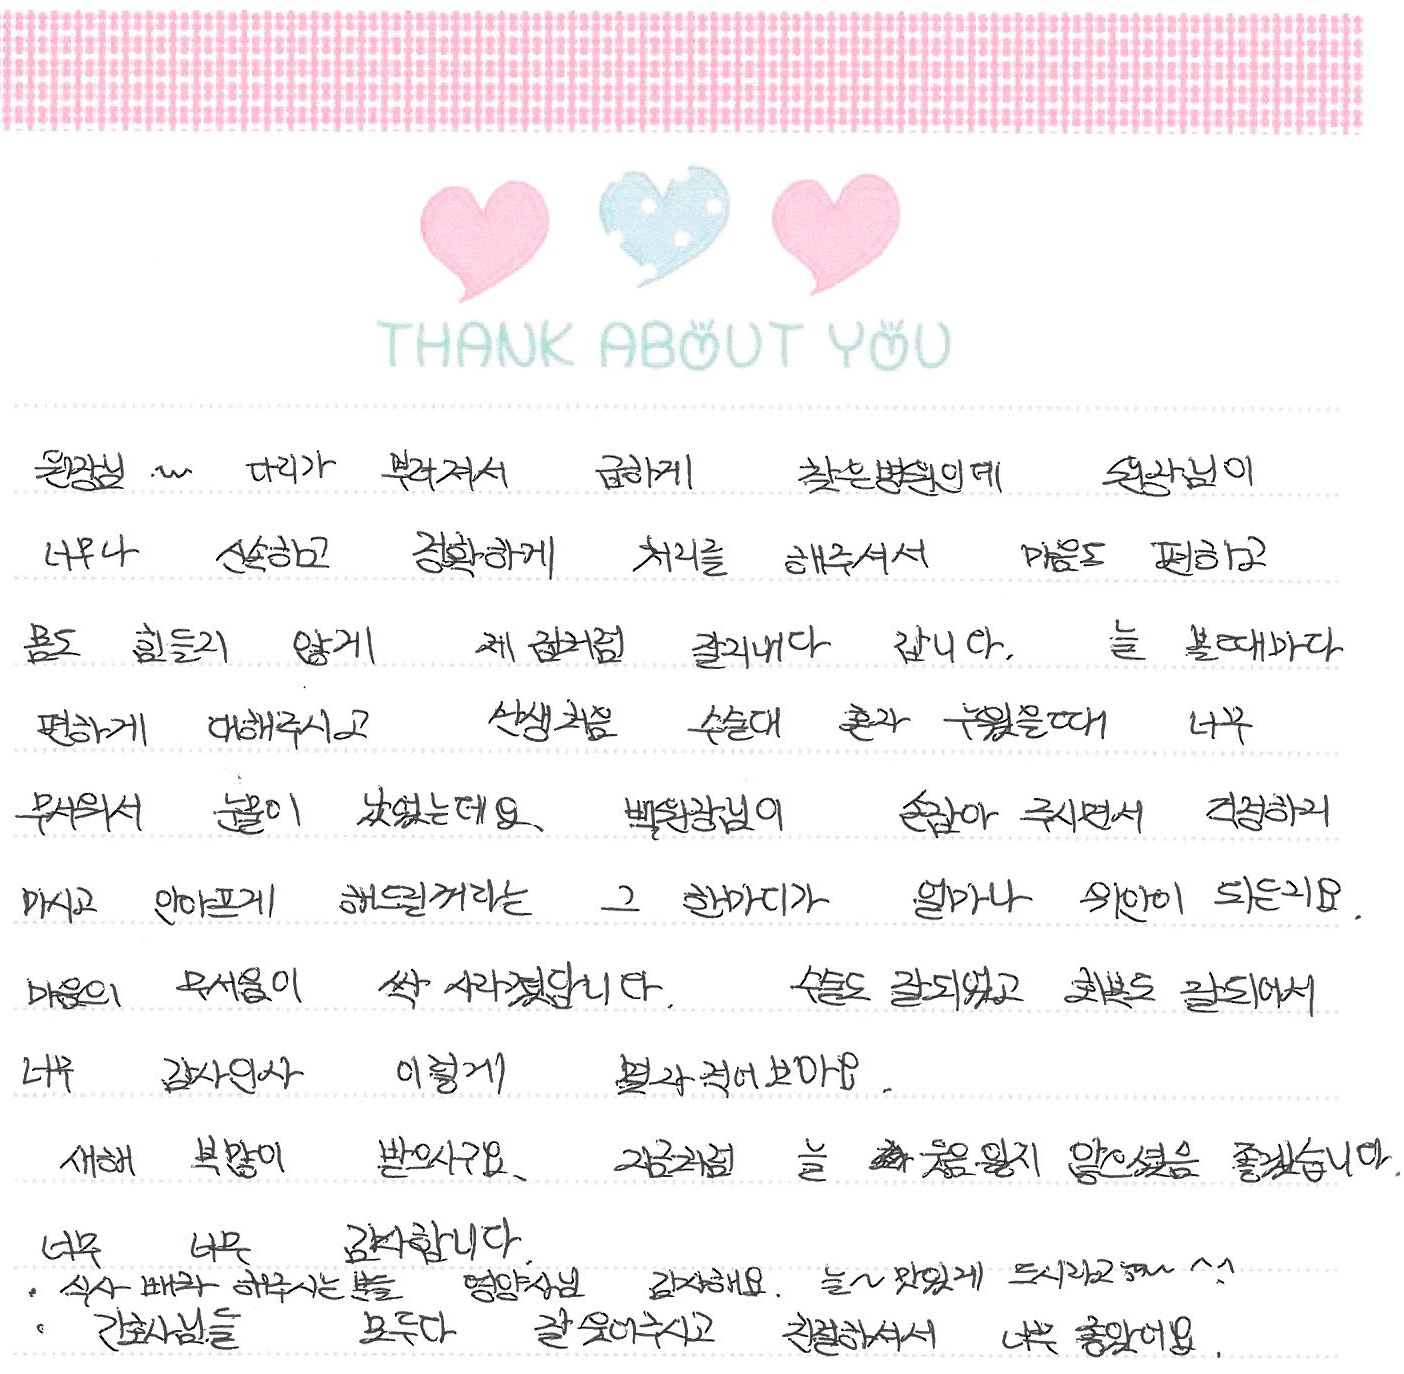 THANK ABOUT YOU
원장님 ~ 다리가 부러져서 급하게 찾은병원인데 원장님이
너무나 신속하고 정확하게 처리를 해주셔서 마음도 편하고
몸도 힘들지 않게 제 집처럼 잘지내다 갑니다. 늘 볼때마다
편하게 대해주시고 난생처음 수술대 혼자 누웠을때 너무
무서워서 눈물이 났었는데요, 백원장님이 손잡아 주시면서 걱정하지
마시고 안아프게 해드릴거라는 그 한마디가 얼마나 위안이 되든지요.
마음의 무서움이 싹 사라졌답니다. 수술도 잘되었고 회복도 잘되어서
너무 감사인사 이렇게 몇자 적어보아요.
새해 복많이 받으시구요, 지금처럼 늘 웃음잃지 않으셨음 좋겠습니다.
너무 너무 감사합니다.
· 식사 배차 해주시는 분들 영양사님 감사해요. 늘~ 맛있게 드시라고 ~ ^^
· 간호사님들 모두다 잘웃어주시고 친절하셔서 너무 좋았어요.